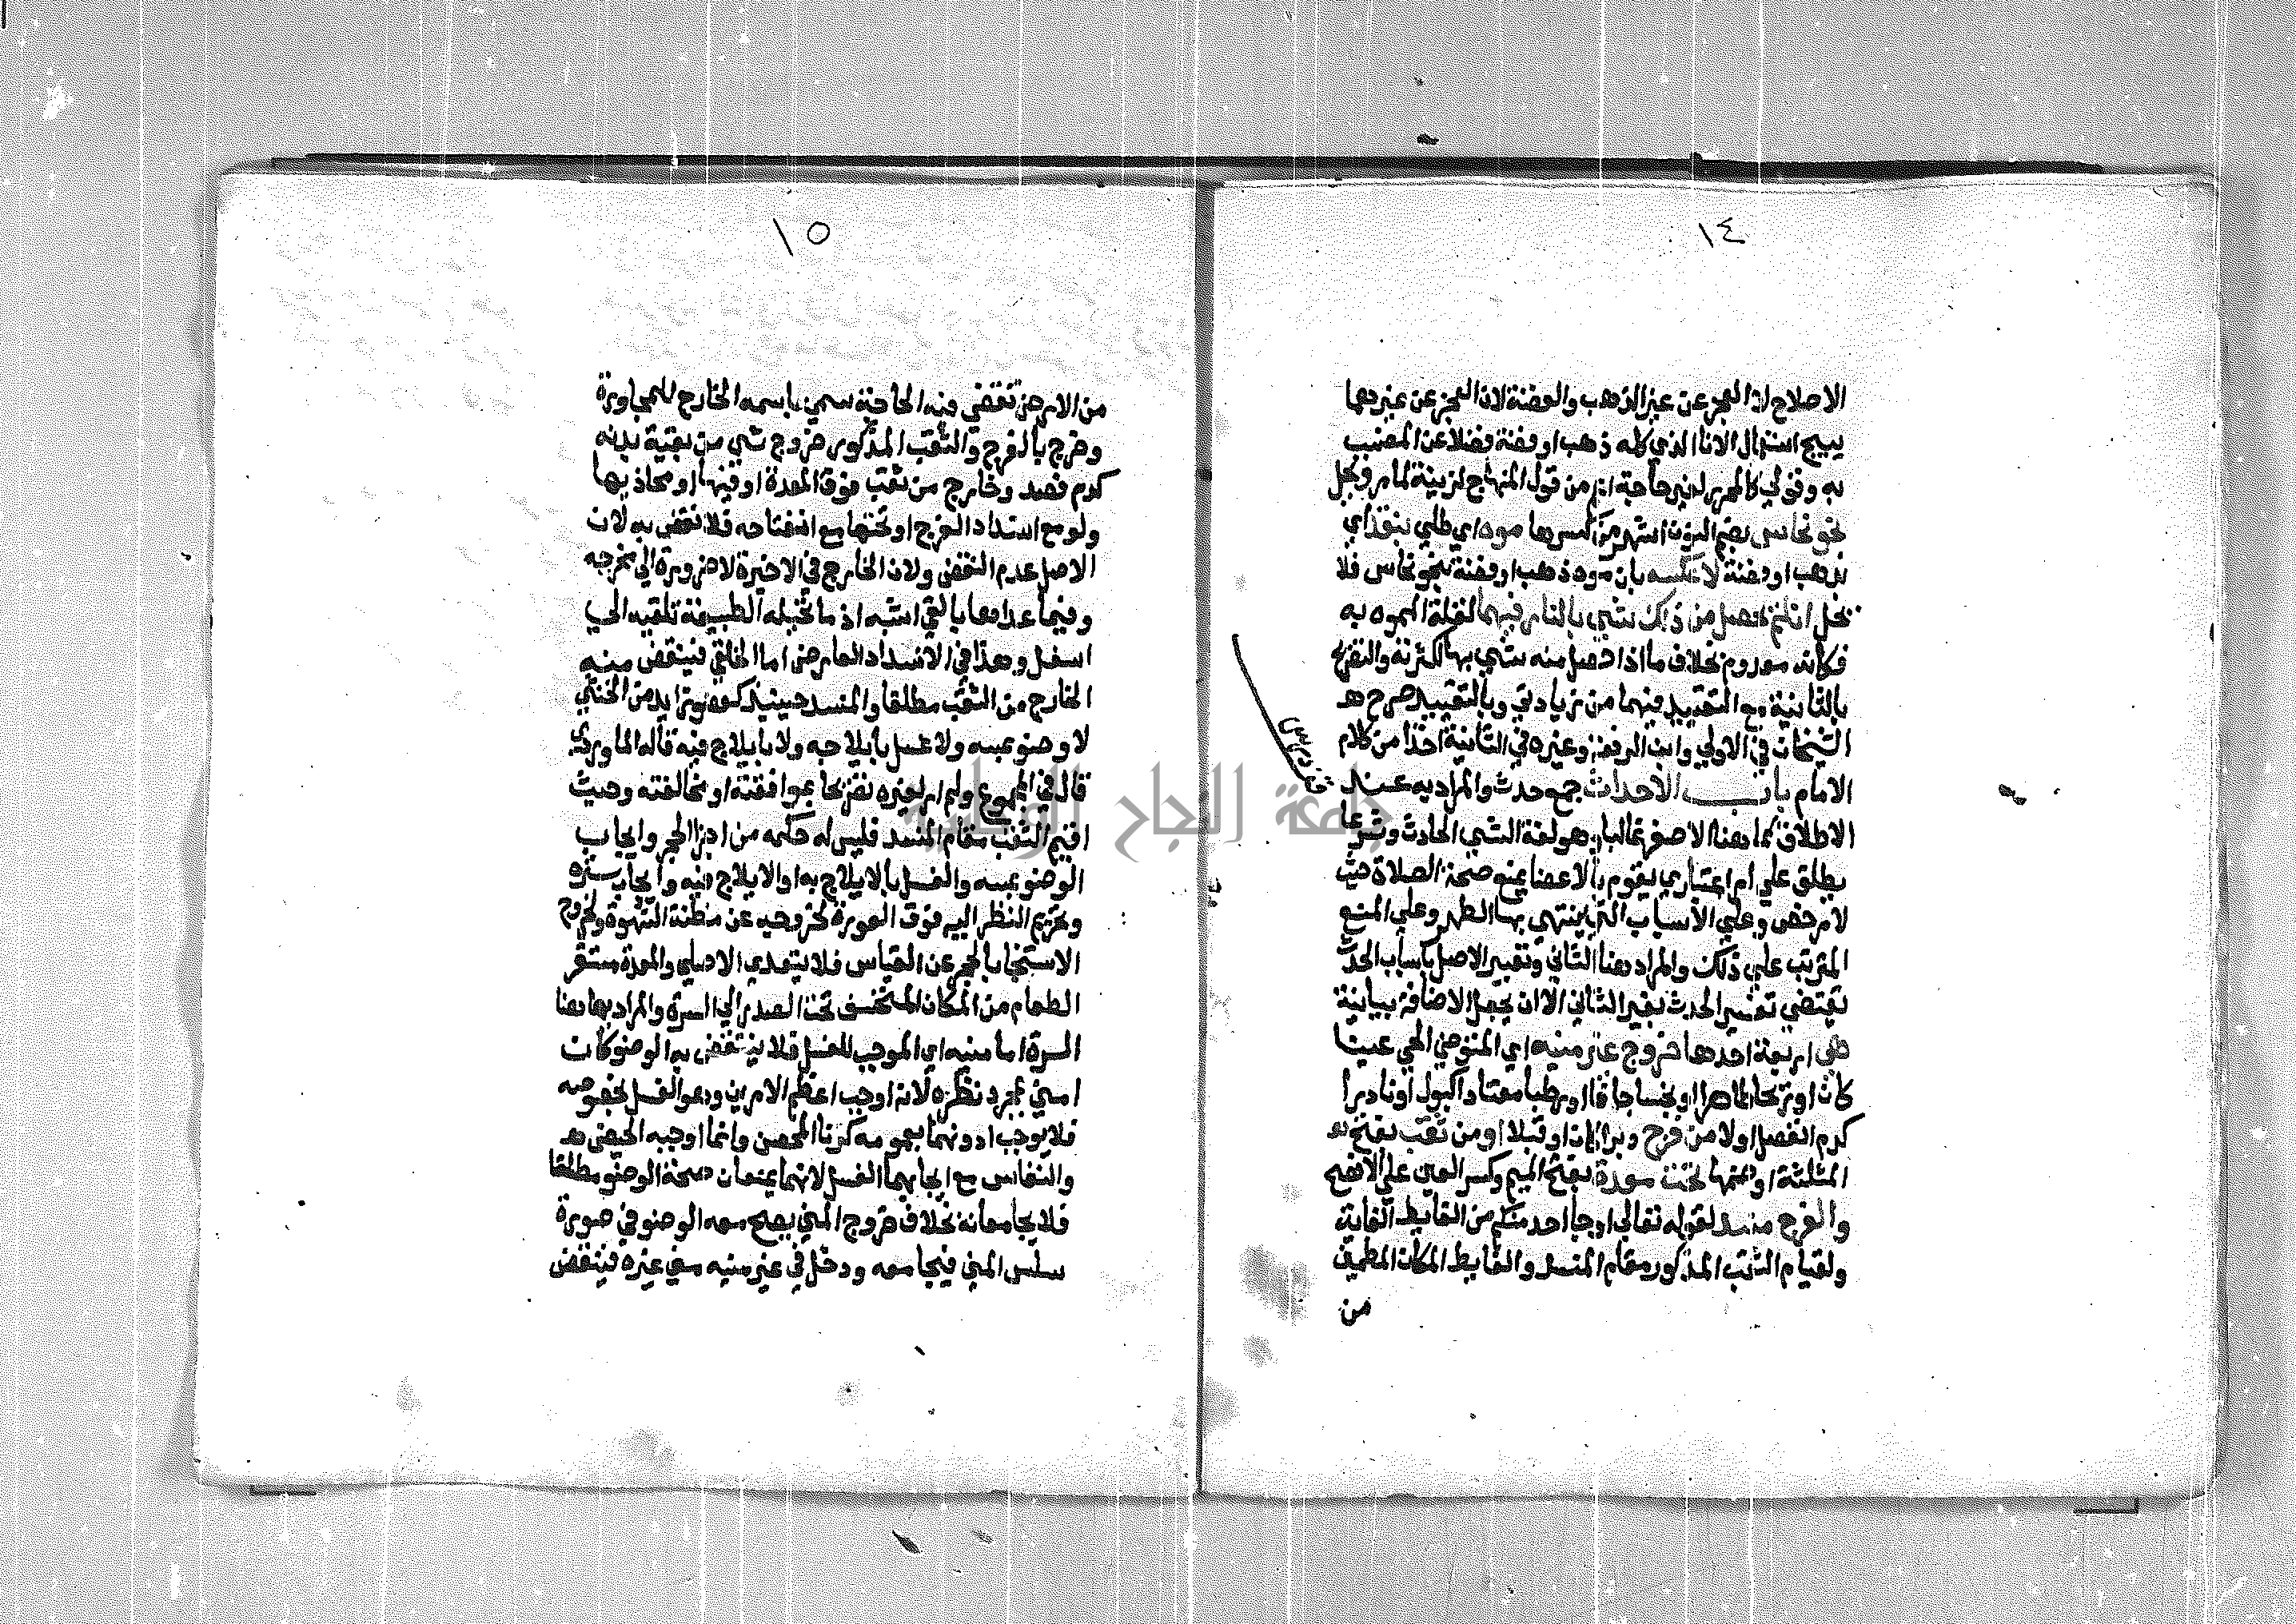 ١٤
الاصلاح لان العجز عن غير الذهب والفضة لان العجز عن غيرهما
يبيح استعمال الانا الذي كله ذهب او فضة فضلا عن المضبب
به وقولي كالمحرر لغير حاجة اعم من قول المنهاج لزينة لما مر ويحل
نحو نحاس بضم النون اشهر من كسرها موه اي طلي بنقد اي
بذهب او فضة لا عكسه بان موه ذهب او فضة بنحو نحاس فلا
يحل ان لم يحصل من ذلك شي بالنار فيهما لقلة المموه به
فكانه معدوم بخلاف ما اذا حصل منه شي بها لكثرته والتصريح
بالثانية مع التقييد فيهما من زيادتي وبالتقييد صرح هـ
الشيخان في الاولي وابن الرفعة وغيره في الثانية اخذا من كلام
الامام باب الاحداث جمع حدث والمراد به عند
الاطلاق كما هنا الاصغر غالبا وهو لغة الشي الحادث وشرعا
يطلق علي امر اعتباري يقوم بالاعضا يمنع صحة الصلاة حيث
لا مرخص وعلي الاسباب التي ينتهي بها الطهر وعلي المنع
المترتب علي ذلك والمراد هنا الثاني وتعبير الاصل باسباب الحدث
يقتضي تفسير الحدث بغير الثاني الا ان تجعل الاضافة بيانية
هي اربعة احدها خروج غير منيه اي المتوضي الحي عينا
كان او ريحا طاهرا او نجسا جافا او رطبا معتادا كبول او نادرا
كدم انفصل اولا من فرج دبرا كان او قبلا او من ثقب بفتح
المثلثة او ضمها تحت معدة بفتح الميم وكسر العين علي الافصح
والفرج منسد لقوله تعالي او جا احد منكم من الغايط الغاية
ولقيام الثقب المذكور مقام المنسد والغايط المكان المطمين
من
١٥
من الارض تقضي فيه الحاجة سمي باسمه الخارج للمجاورة
وخرج بالفرج والثقب المذكور خروج شي من بقية بدنه
كدم فصد وخارج من ثقب فوق المعدة او فيها او محاذيها
ولو مع انسداد الفرج او تحتها مع انفتاحه فلا نقض به لان
الاصل عدم النقض ولان الخارج في الاخيرة لا ضرورة الي مخرجه
وفيما عداها بالقي اشبه اذ ما تحيله الطبيعة تلقيه الي
اسفل وهذا في الانسداد العارض اما الخلقي فينقض منه
الخارج من الثقب مطلقا والمنسد حينيذ كعضو زايد من الخنثي
لا وضو بمسه ولا غسل بايلاجه ولا بايلاج فيه قاله الماوردي
قال في المجموع ولم ار لغيره تصريحا بموافقته او مخالفته وحيث
اقيم الثقب مقام المنسد فليس له حكمه من اجزا الحجر وايجاب
الوضو بمسه والغسل بالايلاج به او الايلاج فيه وايجاب ستره
وتحريم النظر اليه فوق العورة لخروجه عن مظنة الشهوة ولخروج
الاستنجا بالحجر عن القياس فلا يتعدي الاصلي والمعدة مستقر
الطعام من المكان المنخسف تحت الصدر الي السرة والمراد بها هنا
السرة اما منيه اي الموجب للغسل فلا ينتقض به الوضو كان
امني بمجرد نظره لانه اوجب اعظم الامرين وهو الغسل بخصوصه
فلا يوجب ادونهما بعمومه كزنا المحصن وانما اوجبه الحيض هـ
والنفاس مع ايجابهما الغسل لانهما يمنعان صحة الوضو مطلقا
فلا يجامعانه بخلاف خروج المني يصح معه الوضو في صورة
سلس المني فيجامعه ودخل في غير منيه مني غيره فينتقض